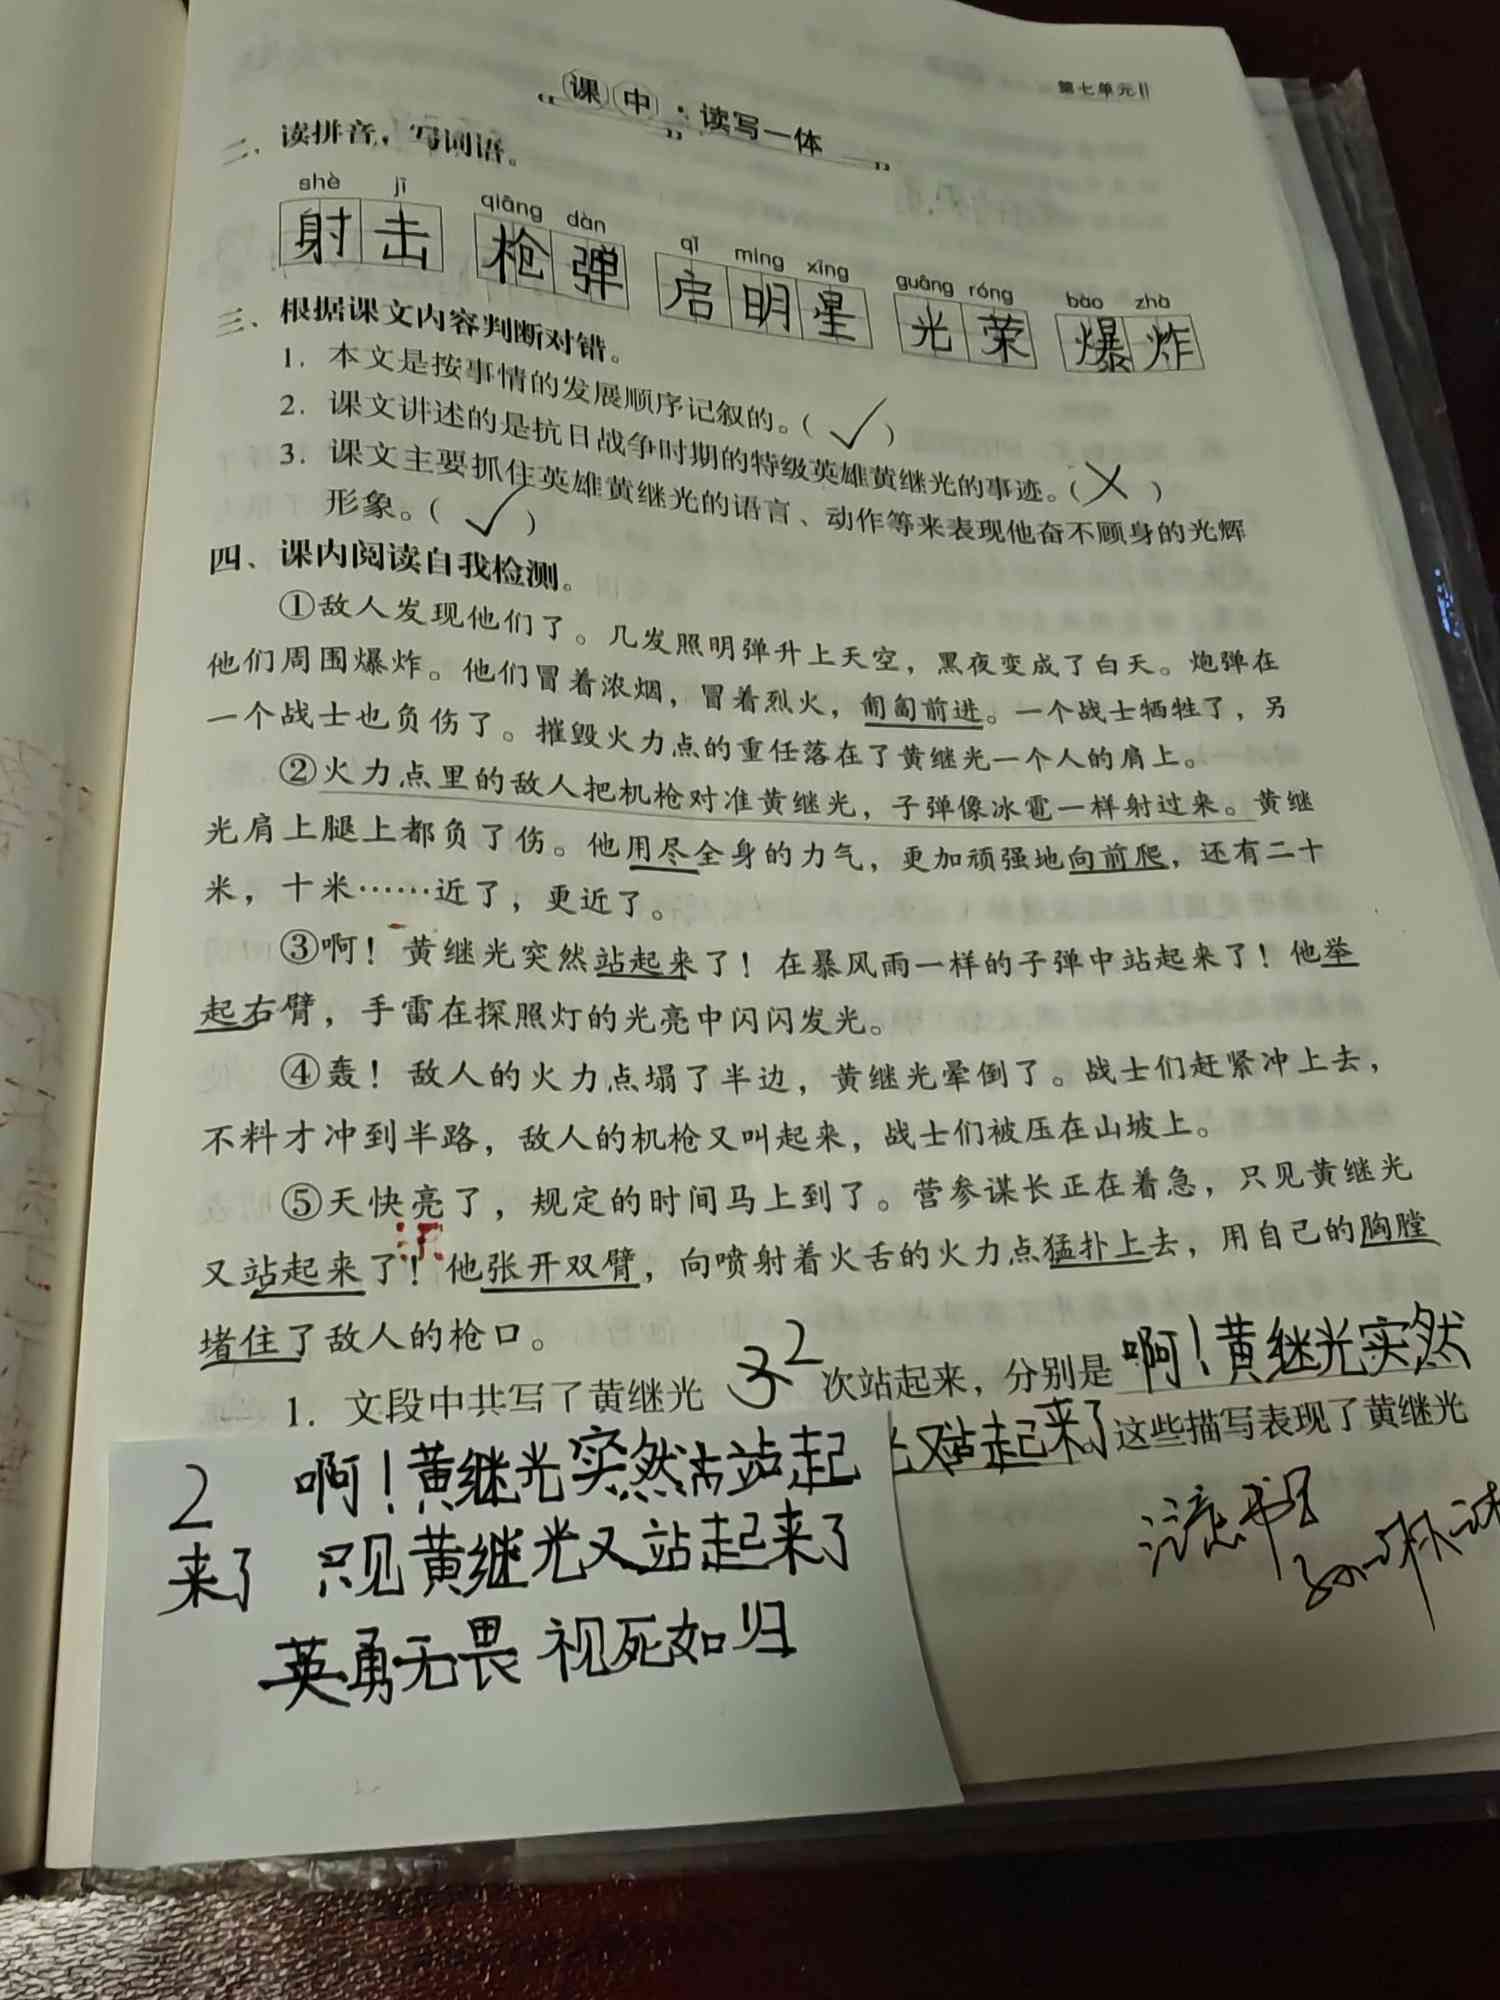 第七单元
课中·读写一体
二、读拼音，写词语。
shè jī qiāng dàn qǐ míng xīng guāng róng bào zhà
射击 枪弹 启明星 光荣 爆炸
三、根据课文内容判断对错。
1. 本文是按事情的发展顺序记叙的。（√）
2. 课文讲述的是抗日战争时期的特级英雄黄继光的事迹。（×）
3. 课文主要抓住英雄黄继光的语言、动作等来表现他奋不顾身的光辉
形象。（√）
四、课内阅读自我检测。
①敌人发现他们了。几发照明弹升上天空，黑夜变成了白天。炮弹在
他们周围爆炸。他们冒着浓烟，冒着烈火，匍匐前进。一个战士牺牲了，另
一个战士也负伤了。摧毁火力点的重任落在了黄继光一个人的肩上。
②火力点里的敌人把机枪对准黄继光，子弹像冰雹一样射过来。黄继
光肩上腿上都负了伤。他用尽全身的力气，更加顽强地向前爬，还有二十
米，十米……近了，更近了。
③啊！黄继光突然站起来了！在暴风雨一样的子弹中站起来了！他举
起右臂，手雷在探照灯的光亮中闪闪发光。
④轰！敌人的火力点塌了半边，黄继光晕倒了。战士们赶紧冲上去，
不料才冲到半路，敌人的机枪又叫起来，战士们被压在山坡上。
⑤天快亮了，规定的时间马上到了。营参谋长正在着急，只见黄继光
又站起来了！他张开双臂，向喷射着火舌的火力点猛扑上去，用自己的胸膛
堵住了敌人的枪口。
1. 文段中共写了黄继光 2 次站起来，分别是 啊！黄继光突然
又站起来了 这些描写表现了黄继光
2 啊！黄继光突然站起
来了 只见黄继光又站起来了
英勇无畏 视死如归